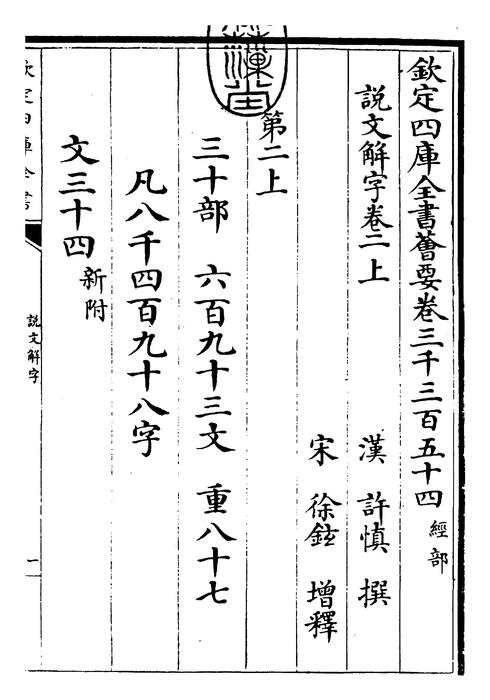 欽定四庫全書薈要卷三千三百五十四 經部
說文解字卷二上
漢 許慎 撰
宋 徐鉉 增釋
第二上
三十部 六百九十三文 重八十七
凡八千四百九十八字
文三十四 新附
欽定四庫全書
說文解字
一